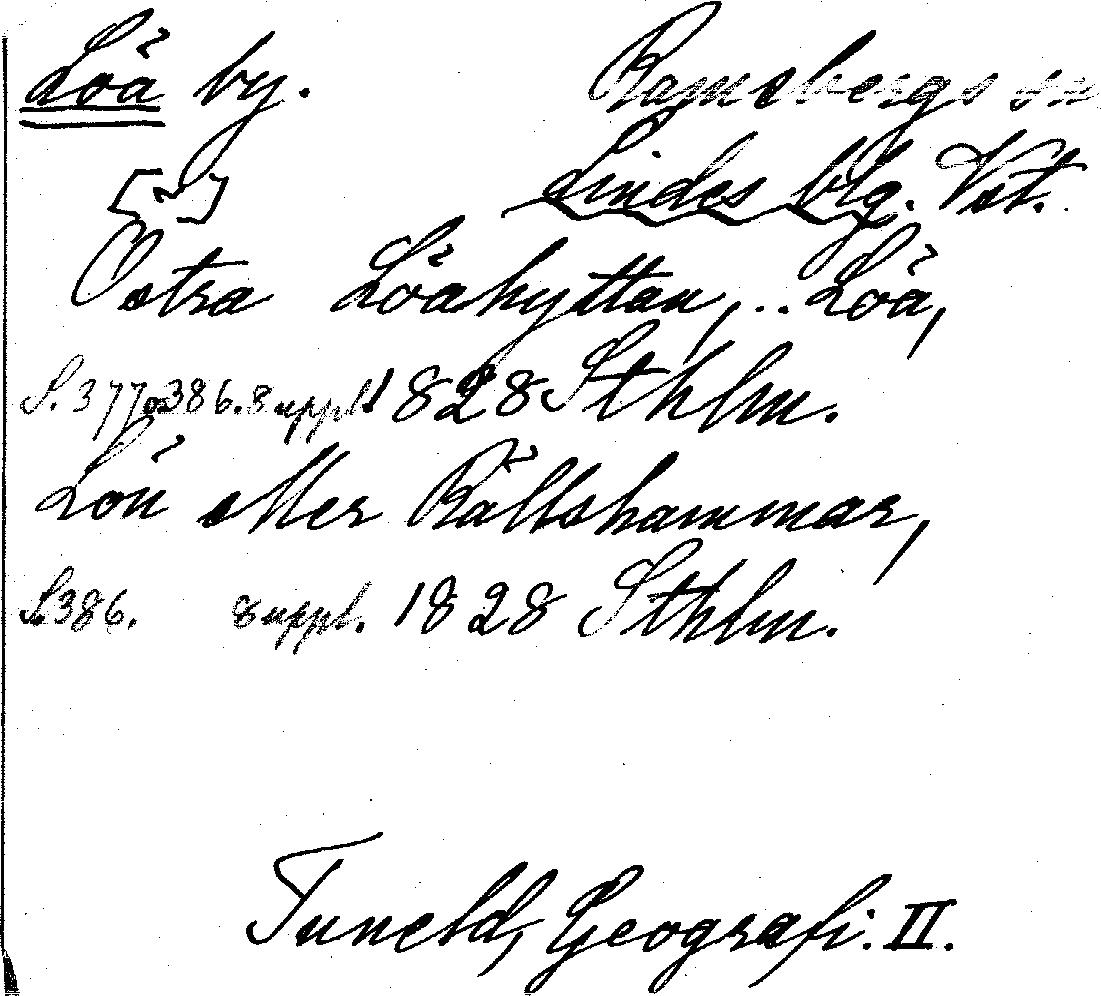 Löa by. Ramsbergs sn
[~] Lindes blg. Vst.
Östra Löahyttan, .. Löa,
S. 377o386. 8 uppl. 1828 Sthlm.
Löa eller Rällshammar,
S. 386. 8 uppl. 1828 Sthlm.
Tuneld, Geografi. II.